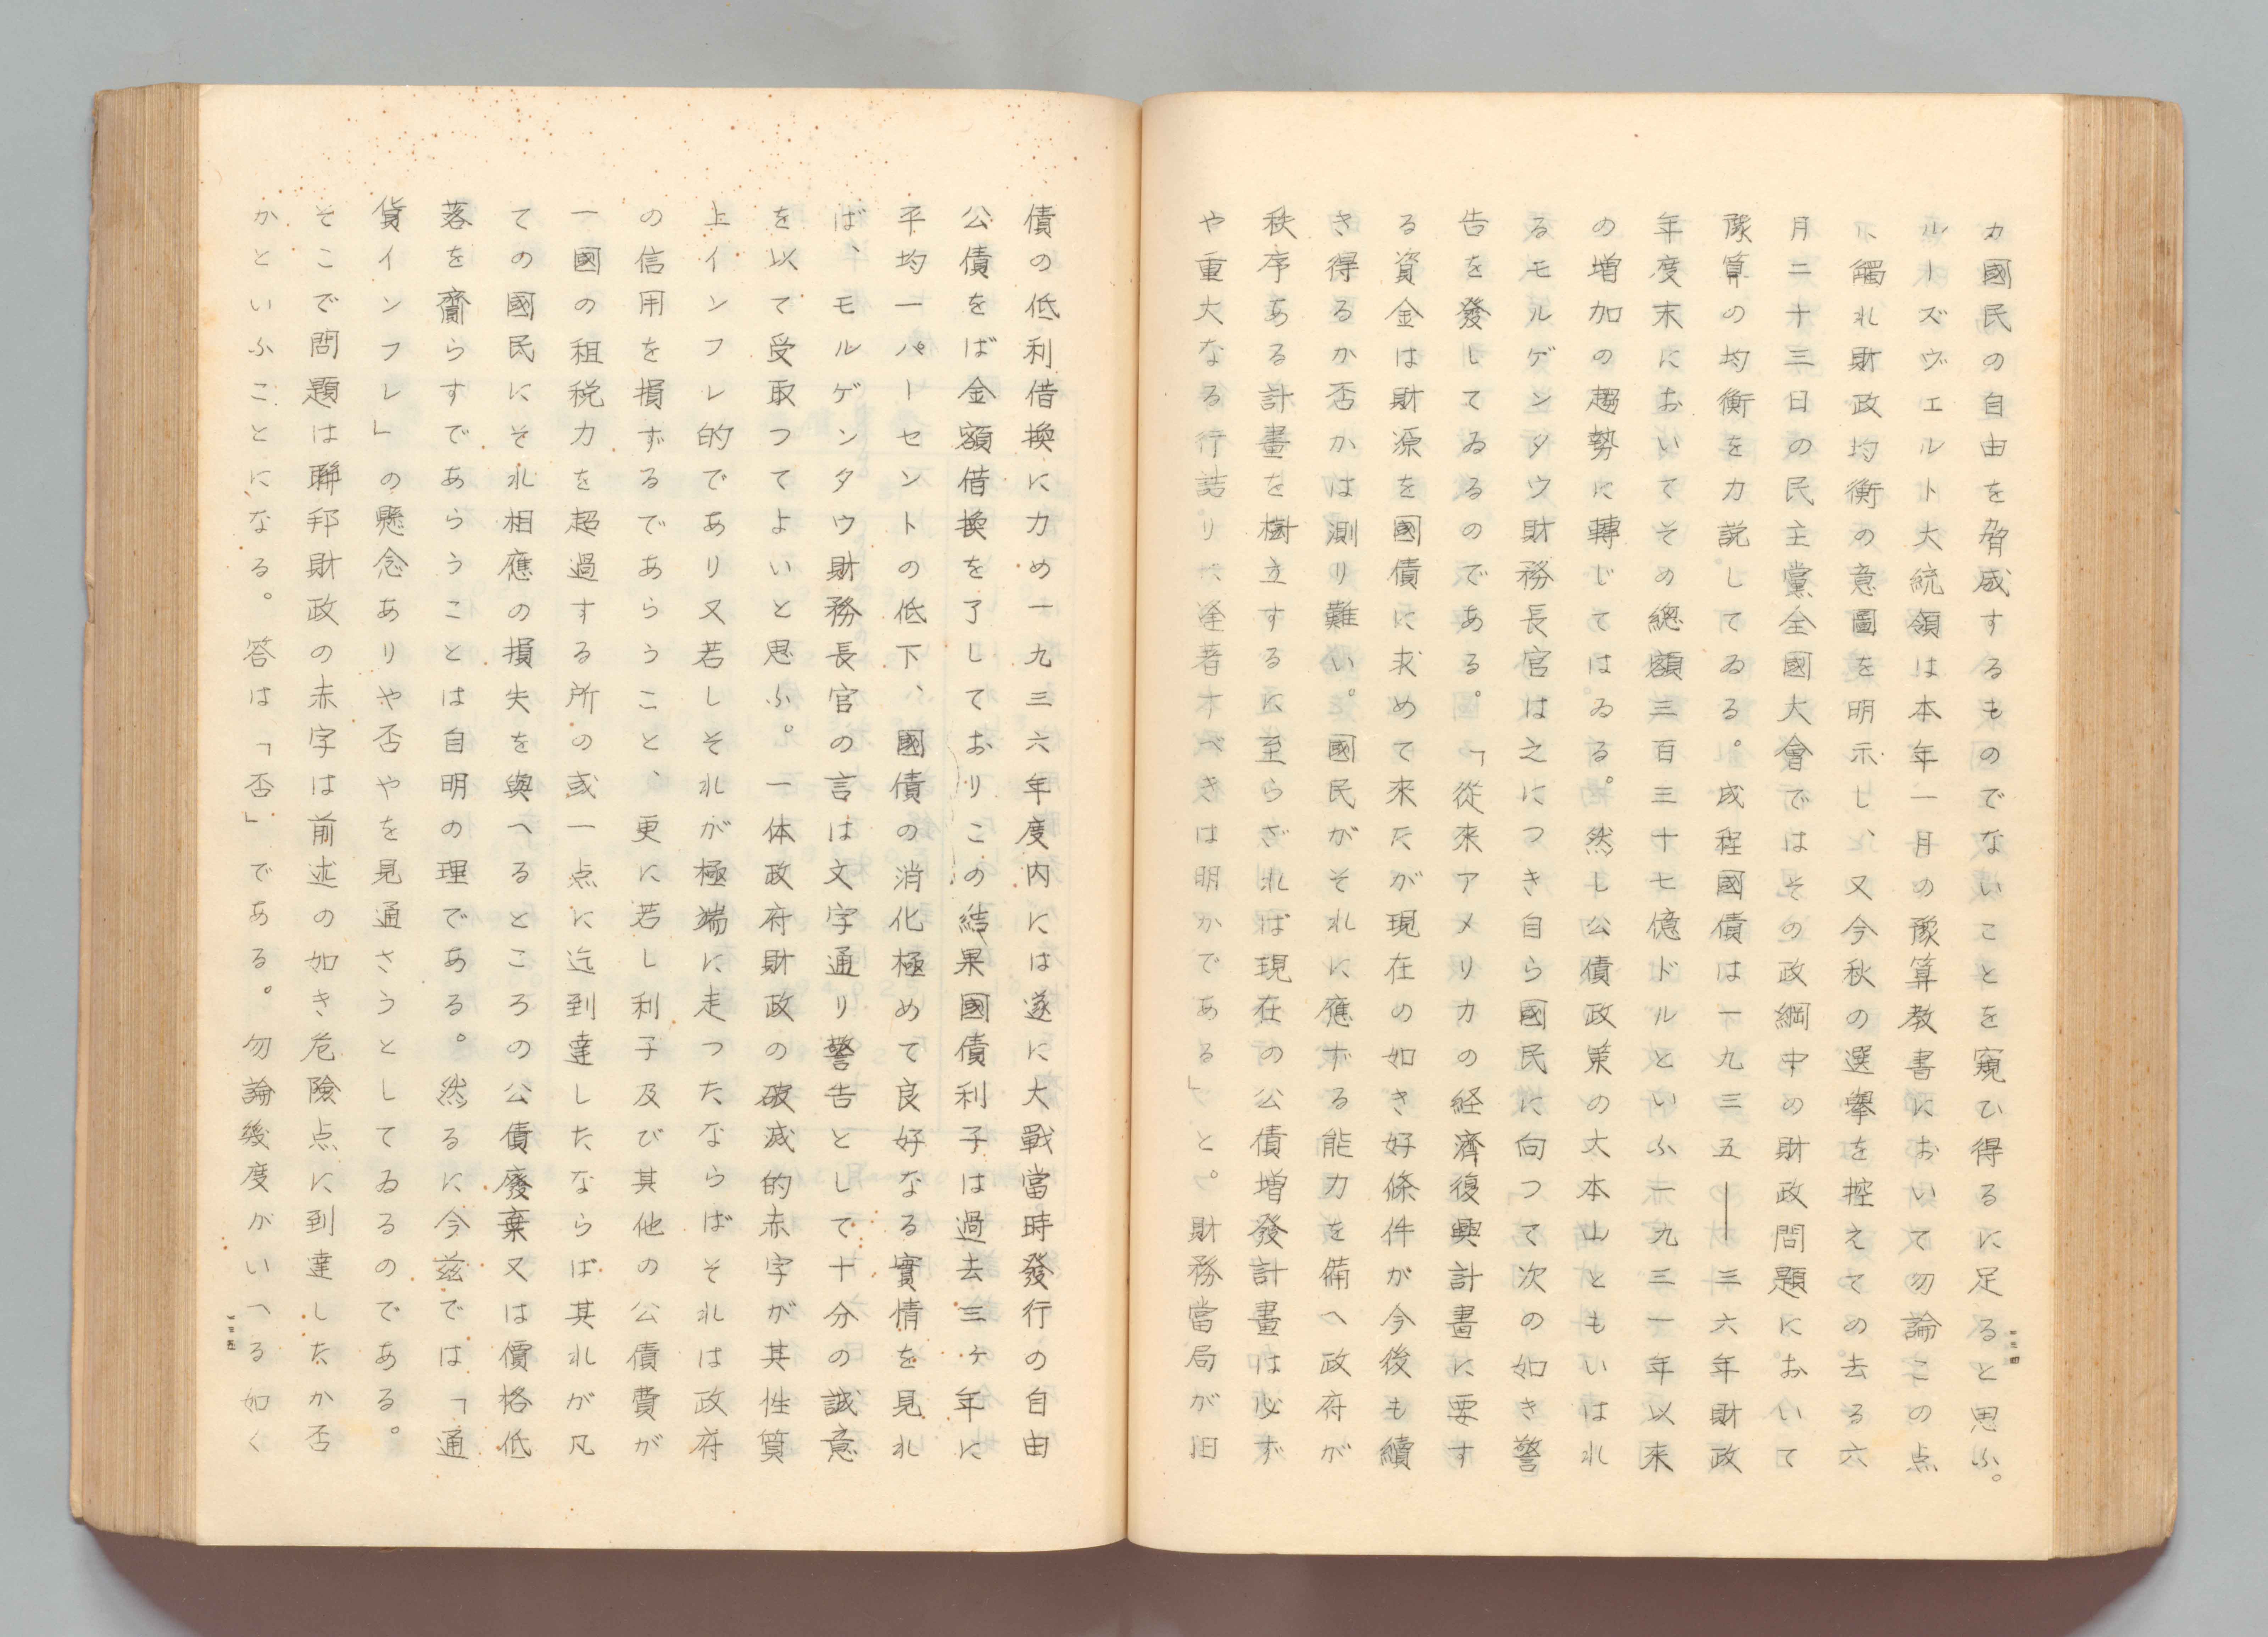 カ國民の自由を脅威するものでないことを窺ひ得るに足ると思ふ。
ルーズヴェルト大統領は本年一月の豫算教書において勿論この点
に觸れ財政均衡の意圖を明示し、又今秋の選擧を控えての去る六
月二十三日の民主黨全國大會ではその政綱中の財政問題において
豫算の均衡を力説してゐる。成程國債は一九三五――三六年財政
年度末においてその總額三百三十七億ドルといふ一九三一年以来
の増加の趨勢に轉じてはゐる。然し公債政策の大本山ともいはれ
るモルゲンタウ財務長官は之につき自ら國民に向つて次の如き警
告を發してゐるのである。「從来アメリカの経濟復興計畫に要す
る資金は財源を國債に求めて来たが現在の如き好條件が今後も續
き得るか否かは測り難い。國民がそれに應ずる能力を備へ政府が
秩序ある計畫を樹立するに至らざれば現在の公債増發計畫は必ず
や重大なる行詰りに逢着すべきは明かである」と。財務當局が旧
一三四
債の低利借換に力め一九三六年度内には遂に大戰當時發行の自由
公債をば金額借換を了しておりこの結果國債利子は過去三ヶ年に
平均一パーセントの低下、國債の消化極めて良好なる實情を見れ
ば、モルゲンタウ財務長官の言は文字通り警告として十分の誠意
を以て受取つてよいと思ふ。一体政府財政の破滅的赤字が其性質
上インフレ的であり又若しそれが極端に走つたならばそれは政府
の信用を損ずるであらうこと、更に若し利子及び其他の公債費が
一國の租税力を超過する所の或一点に迄到達したならば其れが凡
ての國民にそれ相應の損失を與へるところの公債廢棄又は價格低
落を齎らすであらうことは自明の理である。然るに今茲では「通
貨インフレ」の懸念ありや否やを見通さうとしてゐるのである。
そこで問題は聯邦財政の赤字は前述の如き危險点に到達したか否
かといふことになる。答は「否」である。勿論幾度かいへる如く
一三五